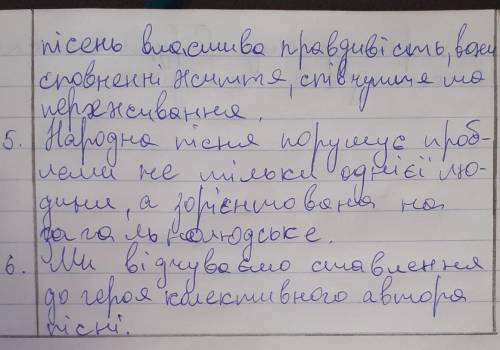 пісень властива правдивість, вони
сповненні життя, співчуття та
переживання.
5. Народна пісня порушує проб-
леми не тільки однієї лю-
дини, а зорієнтована на
загальнолюдське.
6. Ми відчуваємо ставлення
до героя колективного автора
пісні.